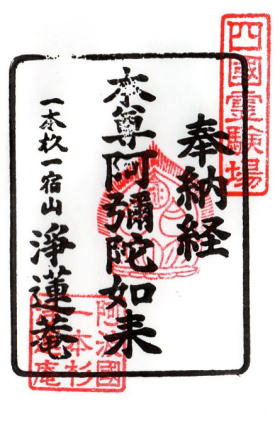 四國霊験場
奉納経
本尊阿彌陀如来
一本杦一宿山 淨蓮菴
阿波國
一本杉
庵